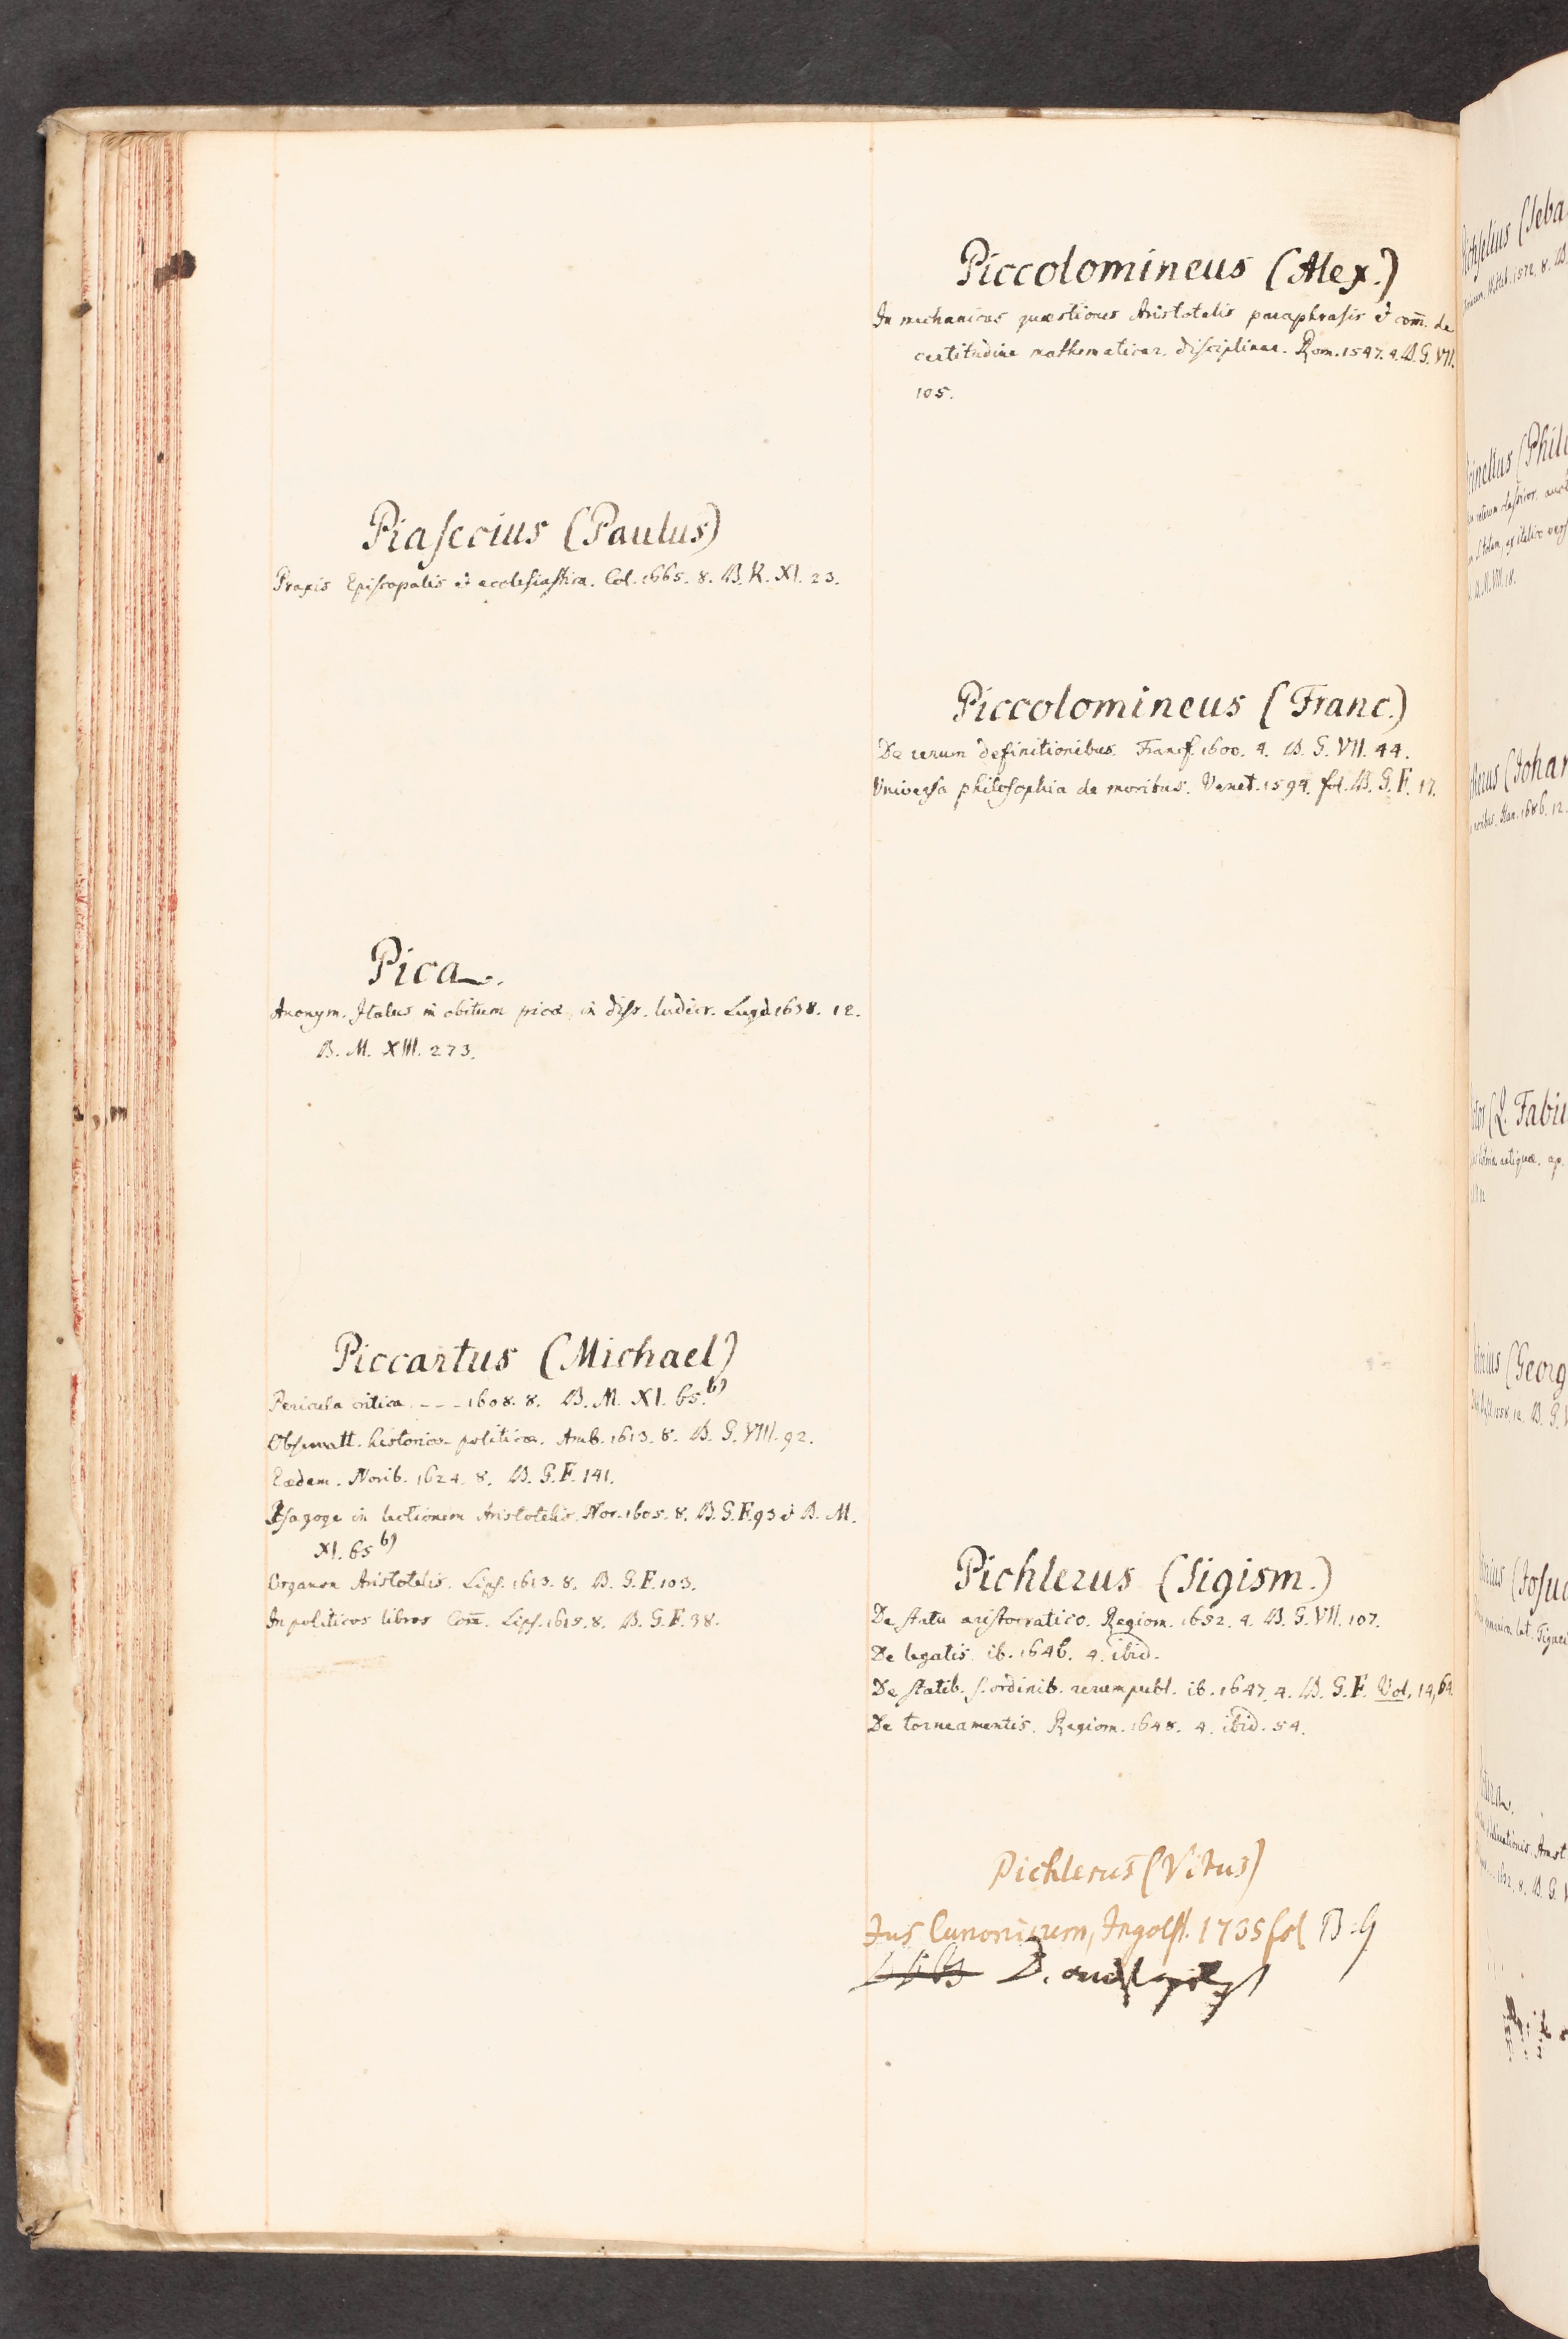 Piaseccius (Paulus)
Praxis Episcopalis & ecclesiastica. Col. 1665. 8. B. K. XI. 23.
Pica.
Anonym. Italus in obitum picæ, in diss. ludicr. Lugd 1638. 12.
B. M. XIII. 273.
Piccartus (Michael)
Pericula critica. - - - 1608. 8. B. M. XI. 65. b)
Observatt. historico-politicæ. Amb. 1613. 8. B. G. VIII. 92.
Eædem. Norib. 1624. 8. B. G. F. 141.
Isagoge in lectionem Aristotelis. Nor. 1605. 8. B. G. F. 93 & B. M.
XI. 65 b)
Organon Aristotelis. Lips. 1613. 8. B. G. F. 103.
In politicos libros Com̄. Lips. 1615. 8. B. G. F. 38.
Piccolomineus (Alex.)
In mechanicas quæstiones Aristotelis paraphrasis & com̄. de
certitudine mathematicar. disciplinar. Rom. 1547. 4. B. G. VII.
105.
Piccolomineus (Franc.)
De rerum definitionibus. Francf. 1600. 4. B. G. VII. 44.
Universa philosophia de moribus. Venet. 1594. fol. B. G. F. 17.
Pichlerus (Sigism.)
De statu aristocratico. Regiom. 1652. 4. B. G. VII. 107.
De legatis. ib. 1646. 4. ibid.
De statib. s. ordinib. rerumpubl. ib. 1647. 4. B. G. F. Vol. 14, 64
De torneamentis. Regiom. 1648. 4. ibid. 54.
Pichlerus (Vitus)
Jus Canonicum, Ingolst. 1735 fol B. G